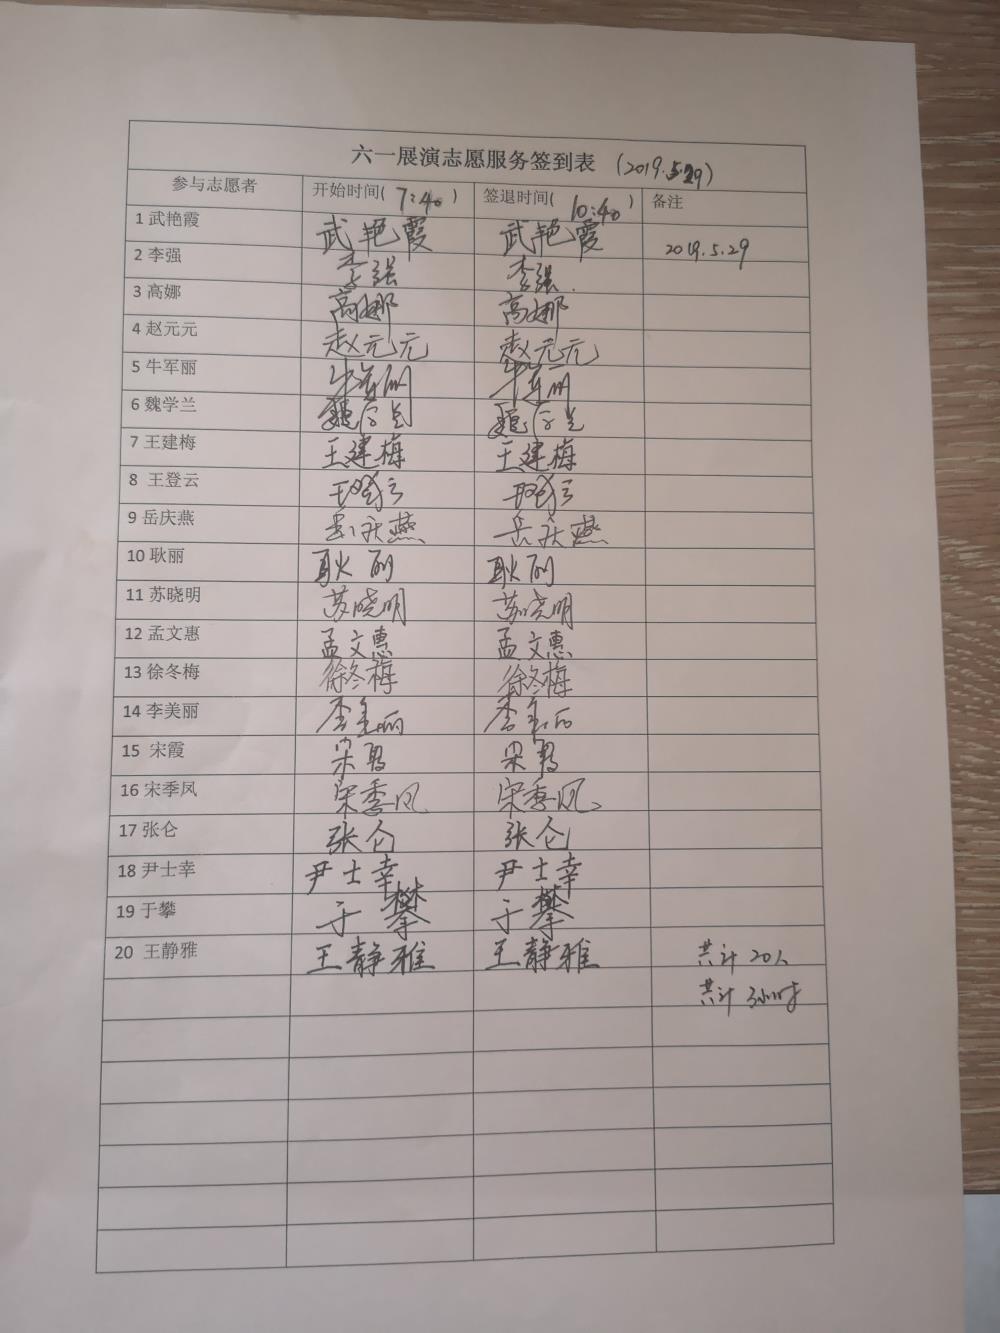 六一展演志愿服务签到表 (2019.5.29)
参与志愿者 开始时间( 7:40 ) 签退时间( 10:40 ) 备注
1 武艳霞 武艳霞 武艳霞 2019.5.29
2 李强 李强 李强.
3 高娜 高娜 高娜
4 赵元元 赵元元 赵元元
5 牛军丽 牛军丽 牛军丽
6 魏学兰 魏学兰 魏学兰
7 王建梅 王建梅 王建梅
8 王登云 王登云 王登云
9 岳庆燕 岳庆燕 岳庆燕
10 耿丽 耿丽 耿丽
11 苏晓明 苏晓明 苏晓明
12 孟文惠 孟文惠 孟文惠
13 徐冬梅 徐冬梅 徐冬梅
14 李美丽 李美丽 李美丽
15 宋霞 宋霞 宋霞
16 宋季凤 宋季凤 宋季凤
17 张仑 张仑 张仑
18 尹士幸 尹士幸 尹士幸
19 于攀 于攀 于攀
20 王静雅 王静雅 王静雅 共计 20人
共计 3小时